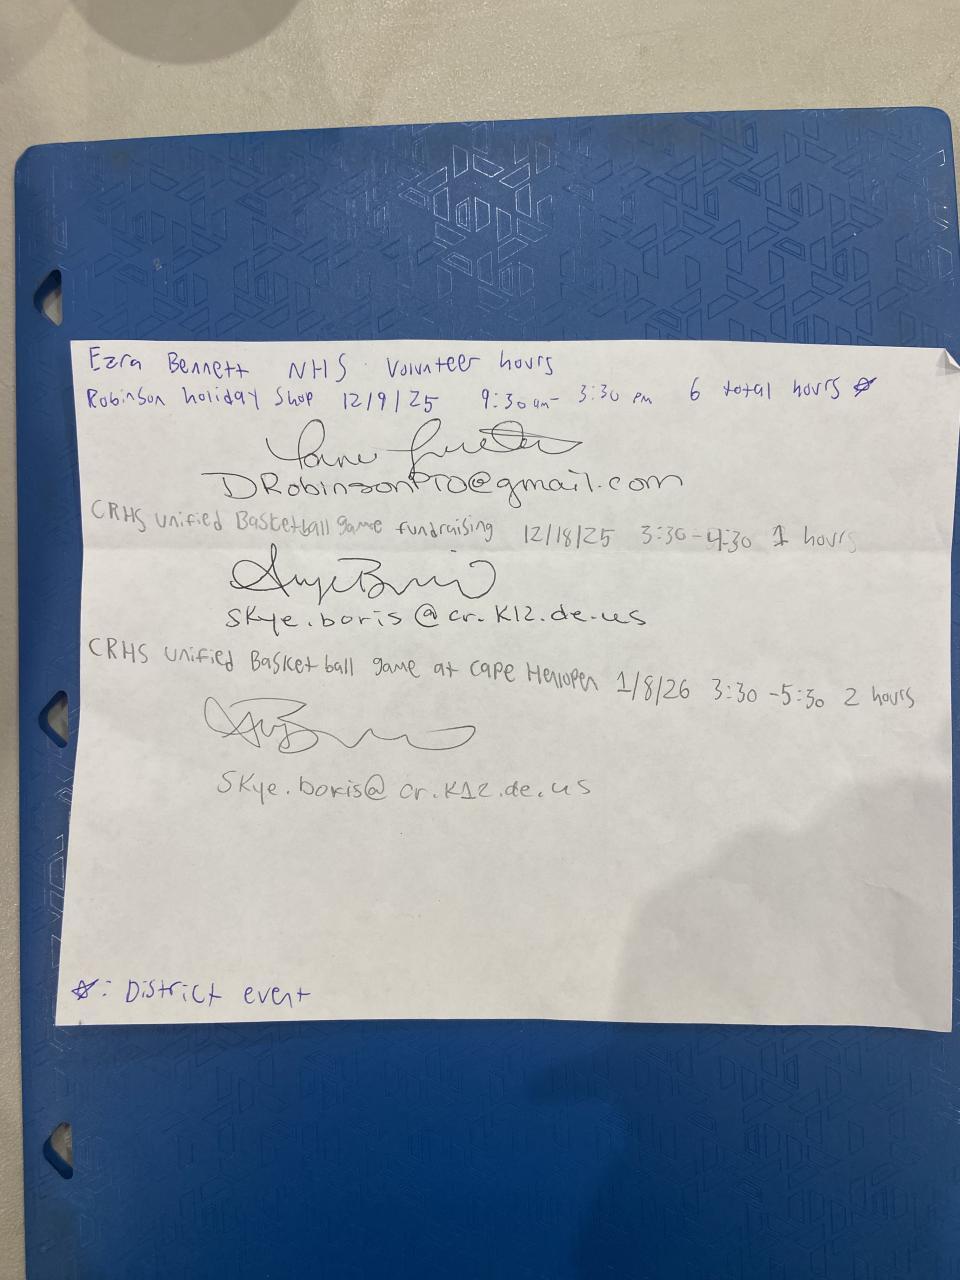 Ezra Bennett NHS Volunteer hours
Robinson holiday Shop 12/9/25 9:30 am- 3:30 PM 6 total hours ☆
DRobinsonPTO@gmail.com
CRHS unified Basketball game fundraising 12/18/25 3:30-4:30 1 hours
skye.boris@cr.k12.de.us
CRHS unified Basketball game at Cape Henlopen 1/8/26 3:30 -5:30 2 hours
Skye.boris@cr.k12.de.us
☆: District event